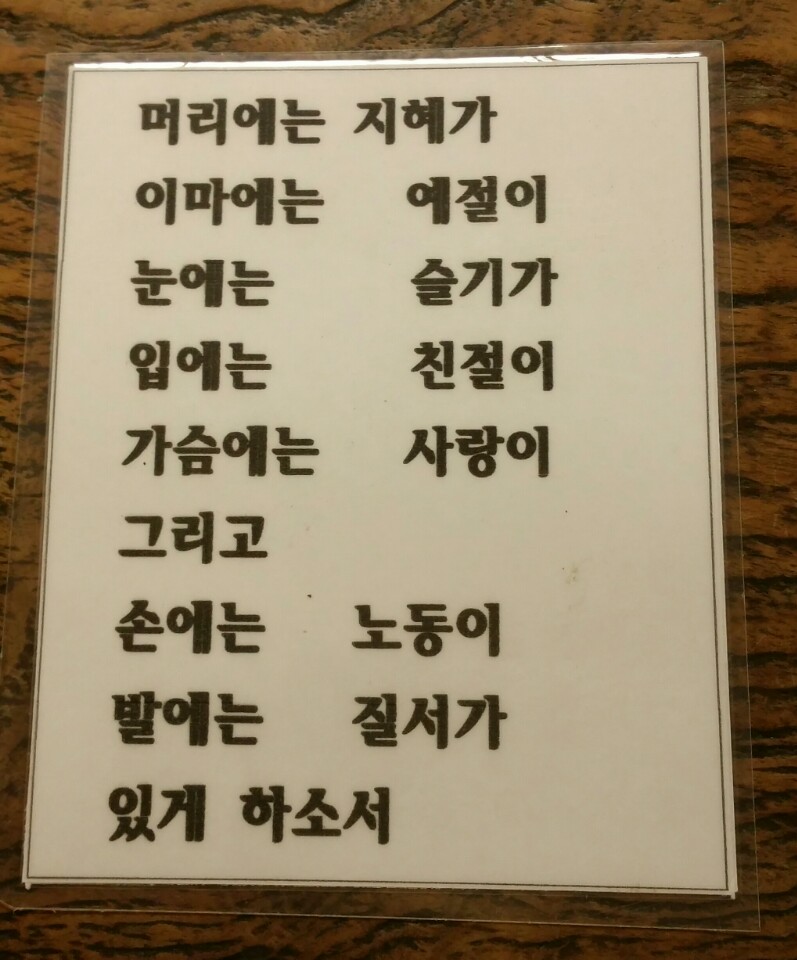 머리에는 지혜가
이마에는 예절이
눈에는 슬기가
입에는 친절이
가슴에는 사랑이
그리고
손에는 노동이
발에는 질서가
있게 하소서